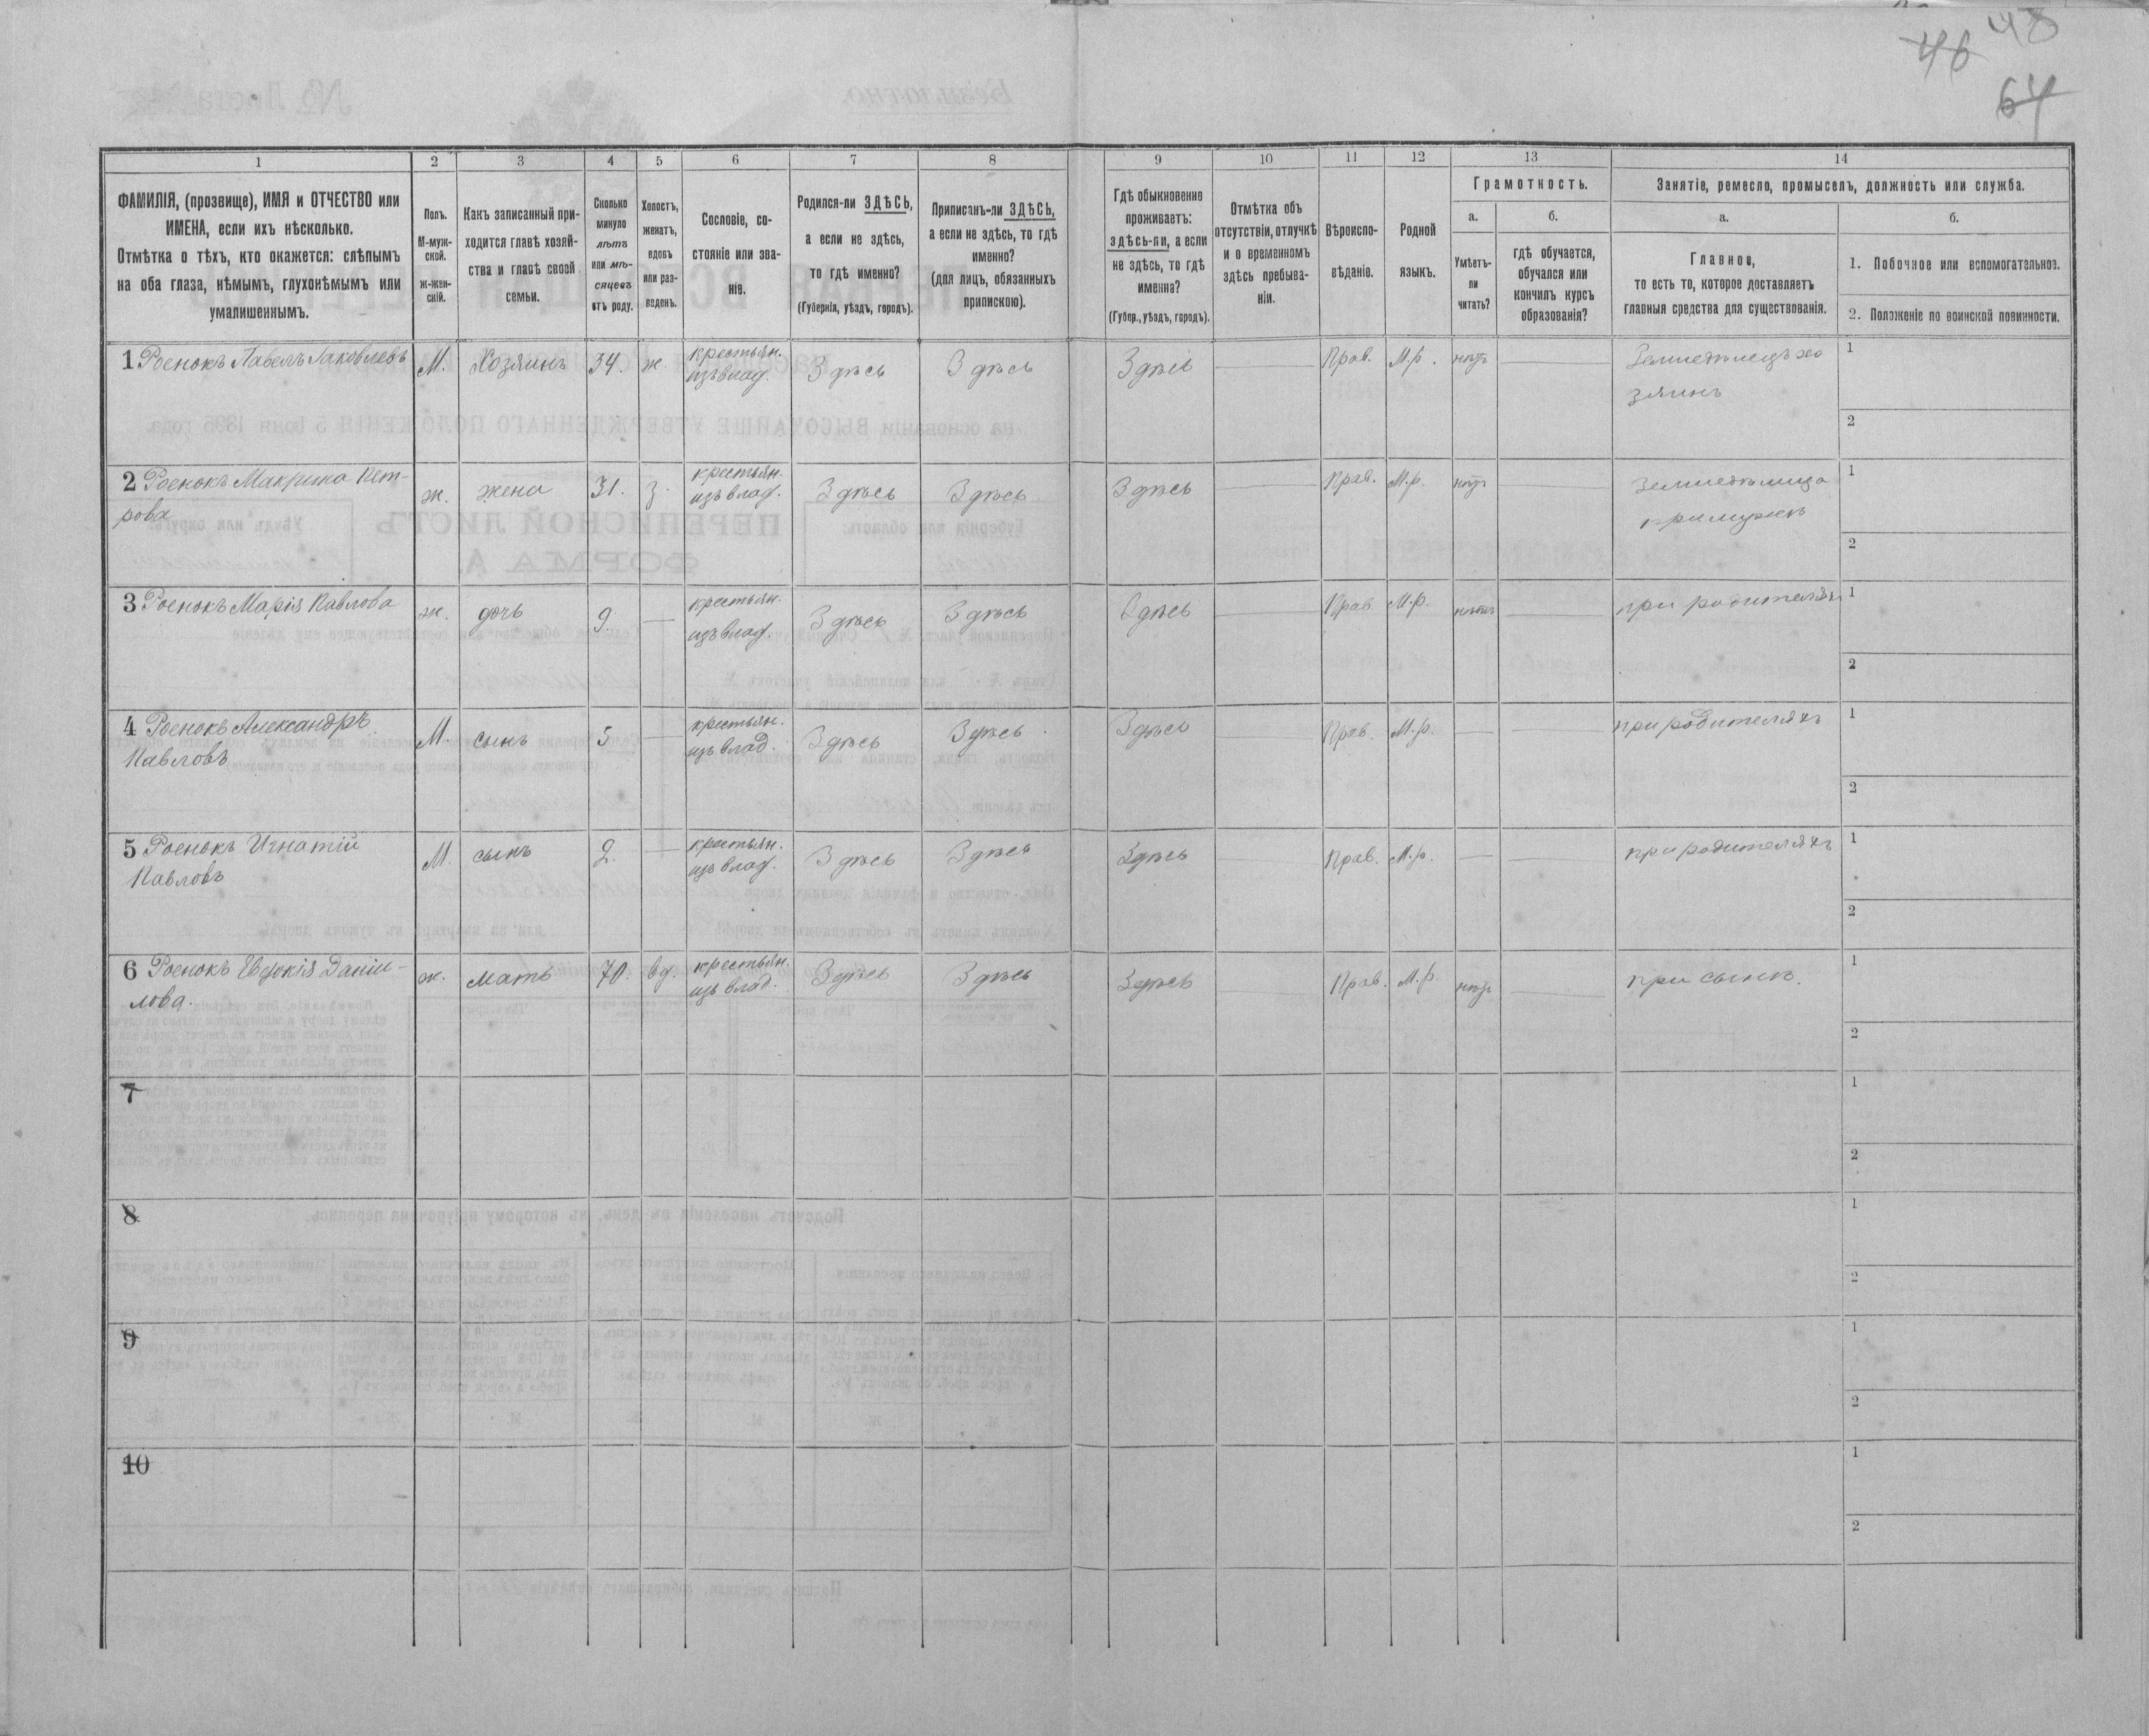 46 48
64
1 2 3 4 5 6 7 8 9 10 11 12 13 14
ФАМИЛІЯ, (прозвище), ИМЯ и ОТЧЕСТВО или
ИМЕНА, если ихъ нѣсколько.
Отмѣтка о тѣхъ, кто окажется: слѣпымъ
на оба глаза, нѣмымъ, глухонѣмымъ или
умалишеннымъ.
Полъ.
М-муж-
ской.
ж-жен-
скій.
Какъ записанный при-
ходится главѣ хозяй-
ства и главѣ своей
семьи.
Сколько
минуло
лѣтъ
или мѣ-
сяцевъ
отъ роду.
Холостъ,
женатъ,
вдовъ
или раз-
веденъ.
Сословіе, со-
стояніе или зва-
ніе.
Родился-ли ЗДѢСЬ,
а если не здѣсь,
то гдѣ именно?
(Губернія, уѣздъ, городъ).
Приписанъ-ли ЗДѢСЬ,
а если не здѣсь, то гдѣ
именно?
(для лицъ, обязанныхъ
припискою).
Гдѣ обыкновенно
проживаетъ:
здѣсь-ли, а если
не здѣсь, то гдѣ
именно?
(Губер., уѣздъ, городъ).
Отмѣтка объ
отсутствіи, отлучкѣ
и о временномъ
здѣсь пребыва-
ніи.
Вѣроиспо-
вѣданіе.
Родной
языкъ.
Грамотность.
а.
Умѣетъ-
ли
читать?
б.
гдѣ обучается,
обучался или
кончилъ курсъ
образованія?
Занятіе, ремесло, промыселъ, должность или служба.
а.
Главное,
то есть то, которое доставляетъ
главныя средства для существованія.
б.
1. Побочное или вспомогательное.
2. Положеніе по воинской повинности.
1 Роенокъ Павелъ Іаковлевъ М. Хозяинъ 34. ж. крестьян. Здѣсь Здѣсь Здѣсь Прав. М.р. нѣтъ Земледѣлецъ хо 1
изъ влад. зяинъ
2
2 Роенокъ Макрина Пет- ж. жена 31. з. крестьян. Здѣсь Здѣсь Здѣсь Прав. М.р. нѣтъ Земледѣлица 1
рова изъ влад. при мужѣ
2
3 Роенокъ Марія Павлова ж. дочь 9. крестьян. Здѣсь Здѣсь Здѣсь Прав. М.р. нѣтъ при родителях 1
изъ влад.
2
4 Роенокъ Александръ М. сынъ 5 крестьян. Здѣсь Здѣсь Здѣсь Прав. М.р. при родителяхъ 1
Павловъ изъ влад.
2
5 Роенокъ Игнатій М. сынъ 2. крестьян. Здѣсь Здѣсь Здѣсь Прав. М.р. при родителяхъ 1
Павловъ изъ влад.
2
6 Роенокъ Евдокія Даніи- ж. мать 70. вд. крестьян. Здѣсь Здѣсь Здѣсь Прав. М.р. нѣтъ при сынѣ. 1
лова. изъ влад.
2
7 1
2
8 1
2
9 1
2
10 1
2